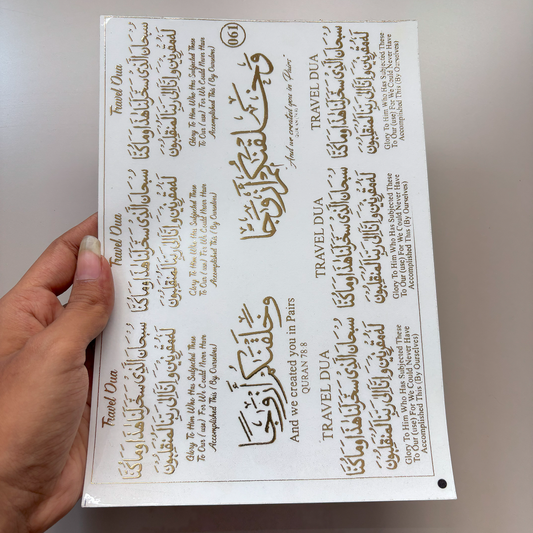 061
Travel Dua
سُبْحَانَ الَّذِي سَخَّرَ لَنَا هَذَا وَمَا كُنَّا
لَهُ مُقْرِنِينَ وَإِنَّا إِلَى رَبِّنَا لَمُنْقَلِبُونَ
Glory To Him Who Has Subjected These
To Our (use) For We Could Never Have
Accomplished This (By Ourselves)
Travel Dua
سُبْحَانَ الَّذِي سَخَّرَ لَنَا هَذَا وَمَا كُنَّا
لَهُ مُقْرِنِينَ وَإِنَّا إِلَى رَبِّنَا لَمُنْقَلِبُونَ
Glory To Him Who Has Subjected These
To Our (use) For We Could Never Have
Accomplished This (By Ourselves)
Travel Dua
سُبْحَانَ الَّذِي سَخَّرَ لَنَا هَذَا وَمَا كُنَّا
لَهُ مُقْرِنِينَ وَإِنَّا إِلَى رَبِّنَا لَمُنْقَلِبُونَ
Glory To Him Who Has Subjected These
To Our (use) For We Could Never Have
Accomplished This (By Ourselves)
وَخَلَقْنَاكُمْ أَزْوَاجًا
And we created you in Pairs
QURAN 78 8
وَخَلَقْنَاكُمْ أَزْوَاجًا
"And we created you in Pairs"
TRAVEL DUA
سُبْحَانَ الَّذِي سَخَّرَ لَنَا هَذَا وَمَا كُنَّا
لَهُ مُقْرِنِينَ وَإِنَّا إِلَى رَبِّنَا لَمُنْقَلِبُونَ
Glory To Him Who Has Subjected These
To Our (use) For We Could Never Have
Accomplished This (By Ourselves)
TRAVEL DUA
سُبْحَانَ الَّذِي سَخَّرَ لَنَا هَذَا وَمَا كُنَّا
لَهُ مُقْرِنِينَ وَإِنَّا إِلَى رَبِّنَا لَمُنْقَلِبُونَ
Glory To Him Who Has Subjected These
To Our (use) For We Could Never Have
Accomplished This (By Ourselves)
TRAVEL DUA
سُبْحَانَ الَّذِي سَخَّرَ لَنَا هَذَا وَمَا كُنَّا
لَهُ مُقْرِنِينَ وَإِنَّا إِلَى رَبِّنَا لَمُنْقَلِبُونَ
Glory To Him Who Has Subjected These
To Our (use) For We Could Never Have
Accomplished This (By Ourselves)